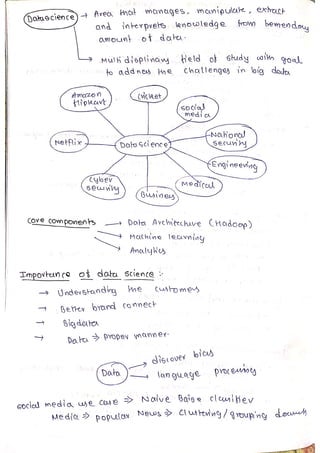 Datascience → Area that manages, manipulate, extract
and interprets knowledge from tremendous
amount of data.
→ Multi disiplinary field of study with goal
to address the challenges in big data
Amazon
flipkart
cricket
social
media
National
security
Engineering
Medical
Business
cyber
security
Netflix
DataScience
core components → Data Architecture (Hadoop)
→ Machine learning
→ Analytics
Importance of data science :-
→ Understanding the customers
→ Better brand connect
→ Bigdata
→ Data ⇒ proper manner.
Data
→ discover bias
→ language processing
social media use case ⇒ Naive Baise classifier
Media ⇒ popular News ⇒ clustering/grouping